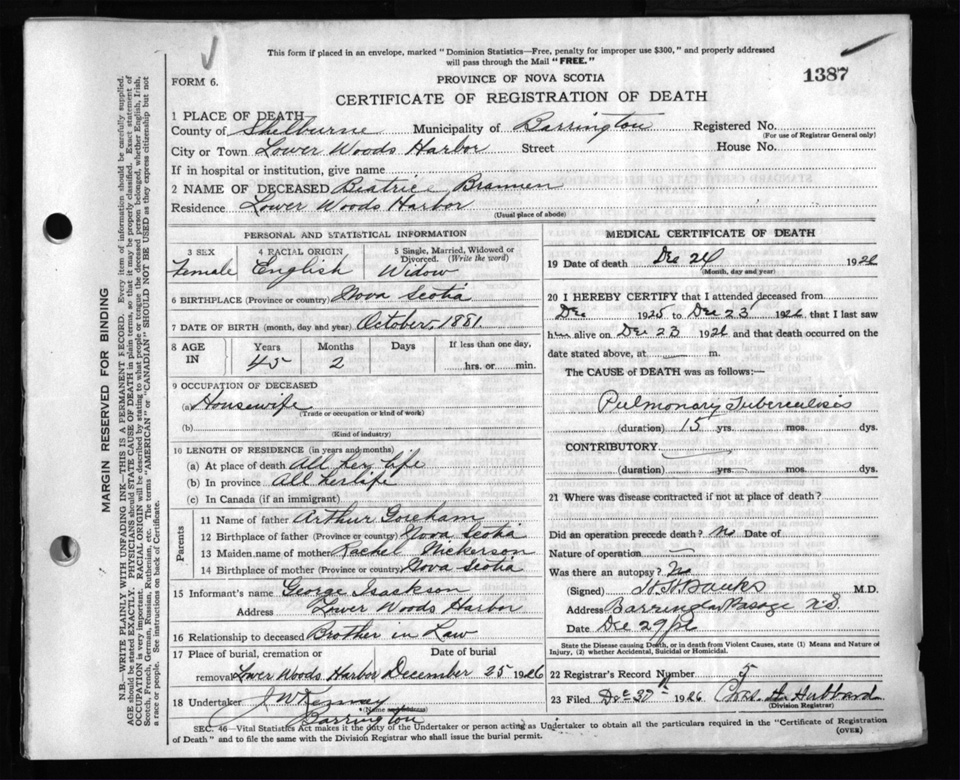 This form if placed in an envelope, marked "Dominion Statistics—Free, penalty for improper use $300," and properly addressed
will pass through the Mail "FREE."
FORM 6.
PROVINCE OF NOVA SCOTIA
1387
CERTIFICATE OF REGISTRATION OF DEATH
1 PLACE OF DEATH
County of Shelburne Municipality of Barrington Registered No.
(For use of Registrar General only)
City or Town Lower Woods Harbor Street House No.
If in hospital or institution, give name
2 NAME OF DECEASED Beatrice Brannen
Residence Lower Woods Harbor
(Usual place of abode)
MARGIN RESERVED FOR BINDING
N.B.—WRITE PLAINLY WITH UNFADING INK—THIS IS A PERMANENT RECORD. Every item of information should be carefully supplied.
AGE should be stated EXACTLY. PHYSICIANS should STATE CAUSE OF DEATH in plain terms, so that it may be properly classified. Exact statement of
OCCUPATION is very important. RACIAL ORIGIN will be described by stating to what people or tongue the deceased person belonged, whether English, Irish,
Scotch, French, German, Russian, Ruthenian, etc. The terms "AMERICAN" or "CANADIAN" SHOULD NOT BE USED as they express citizenship but not
a race or people. See instructions on back of Certificate.
PERSONAL AND STATISTICAL INFORMATION
3 SEX 4 RACIAL ORIGIN 5 Single, Married, Widowed or
Divorced. (Write the word)
Female English Widow
6 BIRTHPLACE (Province or country) Nova Scotia
7 DATE OF BIRTH (month, day and year) October, 1881.
8 AGE IN Years Months Days If less than one day,
45 2 hrs. or min.
9 OCCUPATION OF DECEASED
(a) Housewife
(Trade or occupation or kind of work)
(b)
(Kind of industry)
10 LENGTH OF RESIDENCE (in years and months)
(a) At place of death All her life
(b) In province All her life
(c) In Canada (if an immigrant)
Parents
11 Name of father Arthur Goreham
12 Birthplace of father (Province or country) Nova Scotia
13 Maiden name of mother Rachel Nickerson
14 Birthplace of mother (Province or country) Nova Scotia
15 Informant's name George Isackson
Address Lower Woods Harbor
16 Relationship to deceased Brother in Law
17 Place of burial, cremation or Date of burial
removal Lower Woods Harbor December 25 1926
18 Undertaker J W
(Name and address)
Barrington
MEDICAL CERTIFICATE OF DEATH
19 Date of death Dec 24 1926
(Month, day and year)
20 I HEREBY CERTIFY that I attended deceased from
Dec 1925 to Dec 23 1926, that I last saw
her alive on Dec 23 1926 and that death occurred on the
date stated above, at — m.
The CAUSE of DEATH was as follows:—
Pulmonary Tuberculosis
(duration) 15 yrs. mos. dys.
CONTRIBUTORY
(duration) yrs mos. dys.
21 Where was disease contracted if not at place of death?
Did an operation precede death? no Date of
Nature of operation
Was there an autopsy? No
(Signed) H H Banks M.D.
Address Barrington Passage N.S.
Date Dec 29
State the Disease causing Death, or in death from Violent Causes, state (1) Means and Nature of
Injury, (2) whether Accidental, Suicidal or Homicidal.
22 Registrar's Record Number 5
23 Filed Dec 30th 1926 Hubbard
(Division Registrar)
SEC. 46—Vital Statistics Act makes it the duty of the Undertaker or person acting as Undertaker to obtain all the particulars required in the "Certificate of Registration
of Death" and to file the same with the Division Registrar who shall issue the burial permit.
(OVER)